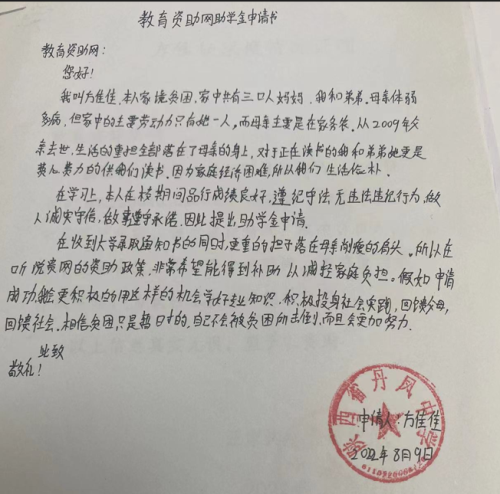 教育资助网助学金申请书
教育资助网：
您好！
我叫方佳佳，本人家境贫困，家中共有三口人妈妈，我和弟弟。母亲体弱
多病，但家中的主要劳动力只有她一人，而母亲主要是在家务农，从2009年父
亲去世，生活的重担全部落在了母亲的身上，对于正在读书的我和弟弟她更是
费心费力的供我们读书，因为家庭经济困难，所以我们生活俭朴。
在学习上，本人在校期间品行成绩良好，遵纪守法，无违法违纪行为，做
人诚实守信，做事重守承诺，因此提出助学金申请。
在收到大学录取通知书的同时，更重的担子落在母亲削瘦的肩头，所以在
听说贵网的资助政策，非常希望能得到补助，以减轻家庭负担。假如申请
成功，能更积极的用这样的机会学好专业知识，积极投身社会实践，回馈父母，
回馈社会，相信贫困只是暂时的，自己不会被贫困所击倒，而且会更加努力。
此致
敬礼！
陕西省丹凤中学
申请人：方佳佳
2022年8月9日